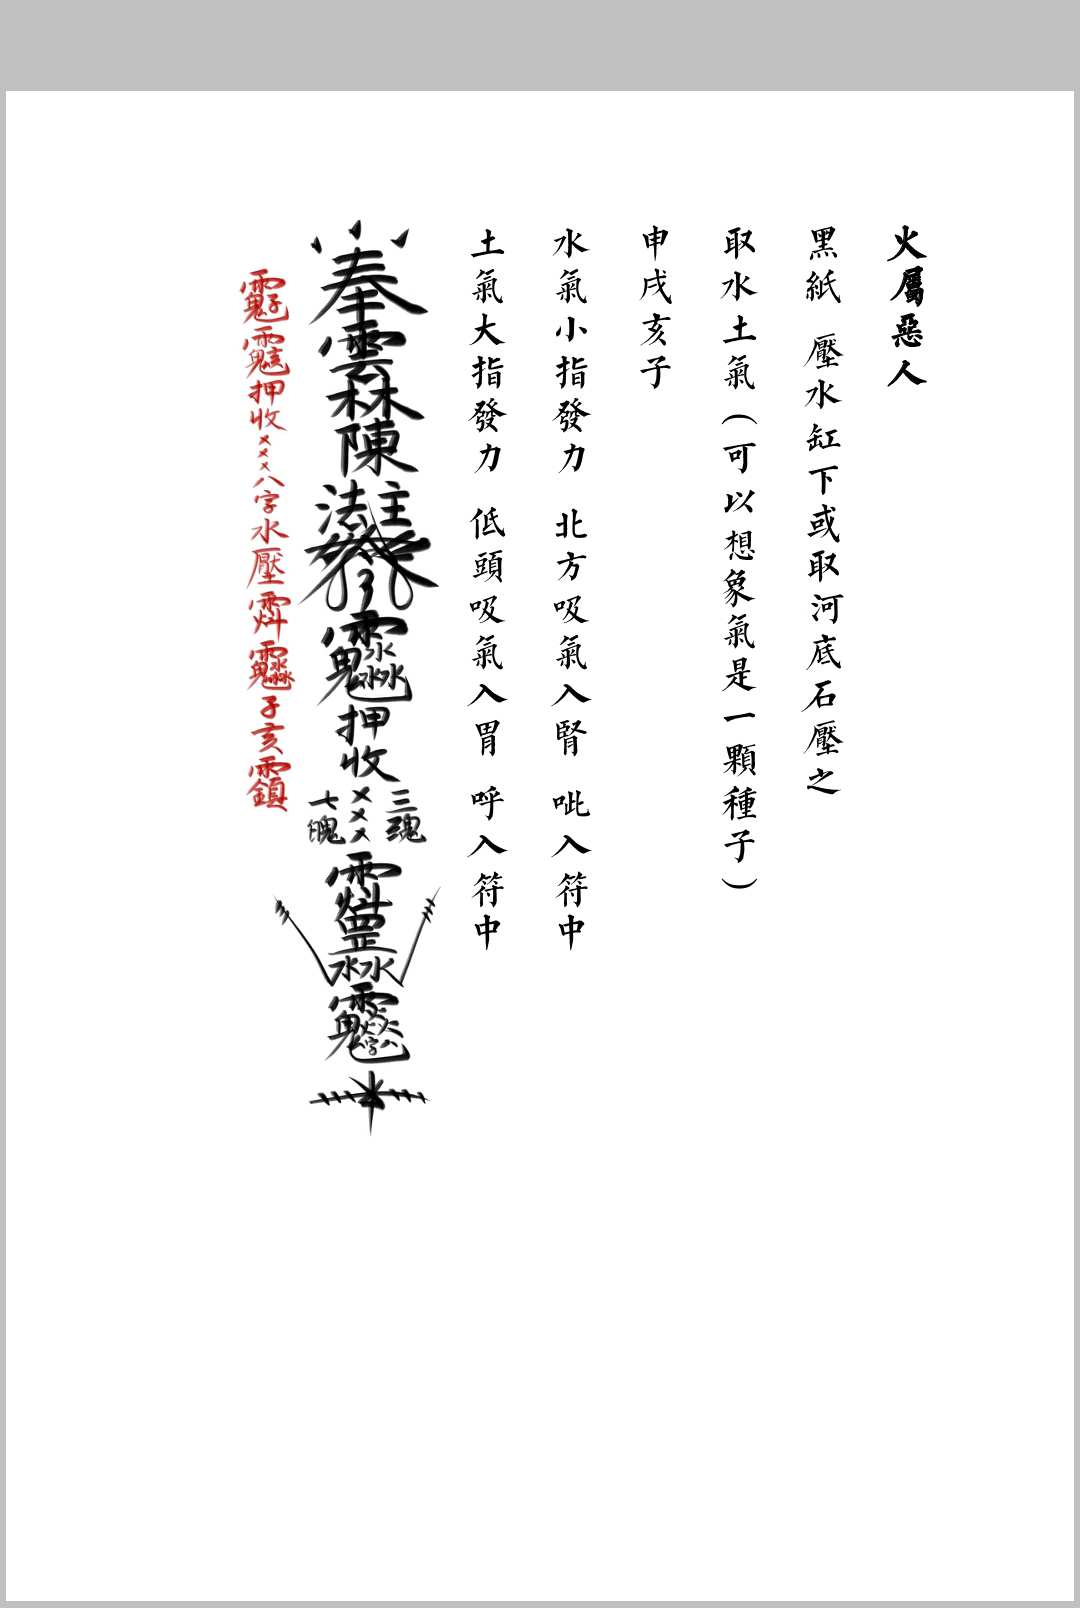 火屬惡人
黑紙 壓水缸下或取河底石壓之
取水土氣(可以想象氣是一顆種子)
申戌亥子
水氣小指發力 北方吸氣入腎 呲入符中
土氣大指發力 低頭吸氣入胃 呼入符中
奉雲林陳法主
押收
三魂
×××
七魄
押收×××八字水壓
子亥